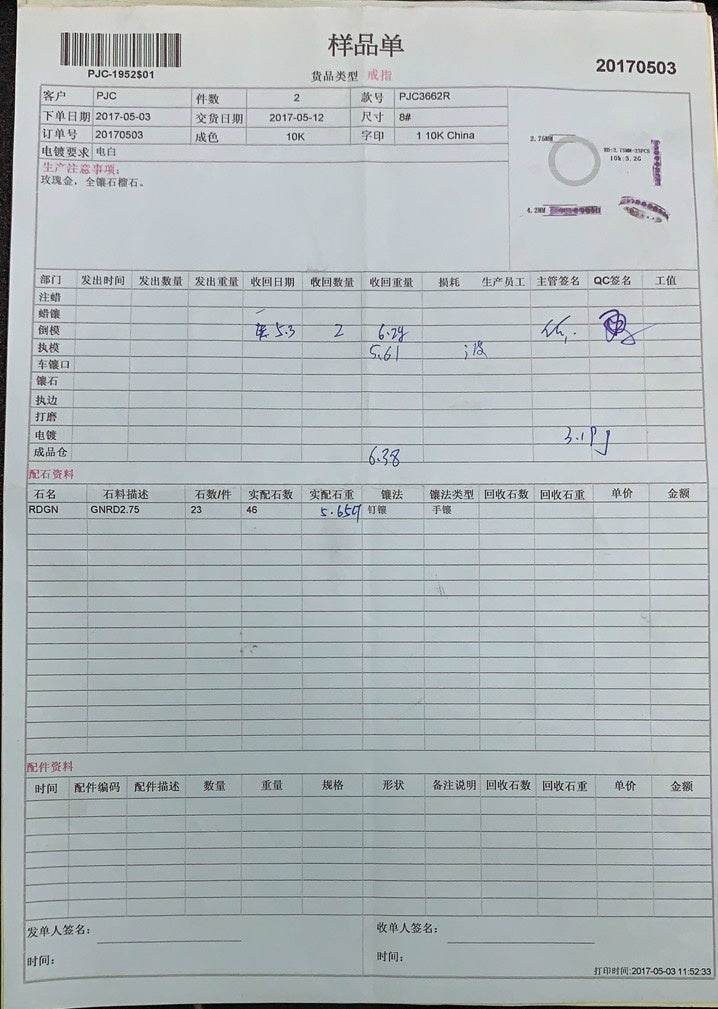 样品单
PJC-1952$01
货品类型 戒指
20170503
客户 PJC 件数 2 款号 PJC3662R
下单日期 2017-05-03 交货日期 2017-05-12 尺寸 8#
订单号 20170503 成色 10K 字印 1 10K China
电镀要求 电白
生产注意事项:
玫瑰金，全镶石榴石。
2.75MM
RD:2.75MM=23PCS
10k:3.2G
4.2MM
部门 发出时间 发出数量 发出重量 收回日期 收回数量 收回重量 损耗 生产员工 主管签名 QC签名 工值
注蜡
蜡镶
倒模 5.3 2 6.2g
执模 5.61
车镶口
镶石
执边
打磨
电镀
成品仓 6.38
配石资料
石名 石料描述 石数/件 实配石数 实配石重 镶法 镶法类型 回收石数 回收石重 单价 金额
RDGN GNRD2.75 23 46 钉镶 手镶
配件资料
时间 配件编码 配件描述 数量 重量 规格 形状 备注说明 回收石数 回收石重 单价 金额
发单人签名: 收单人签名:
时间: 时间:
打印时间:2017-05-03 11:52:33